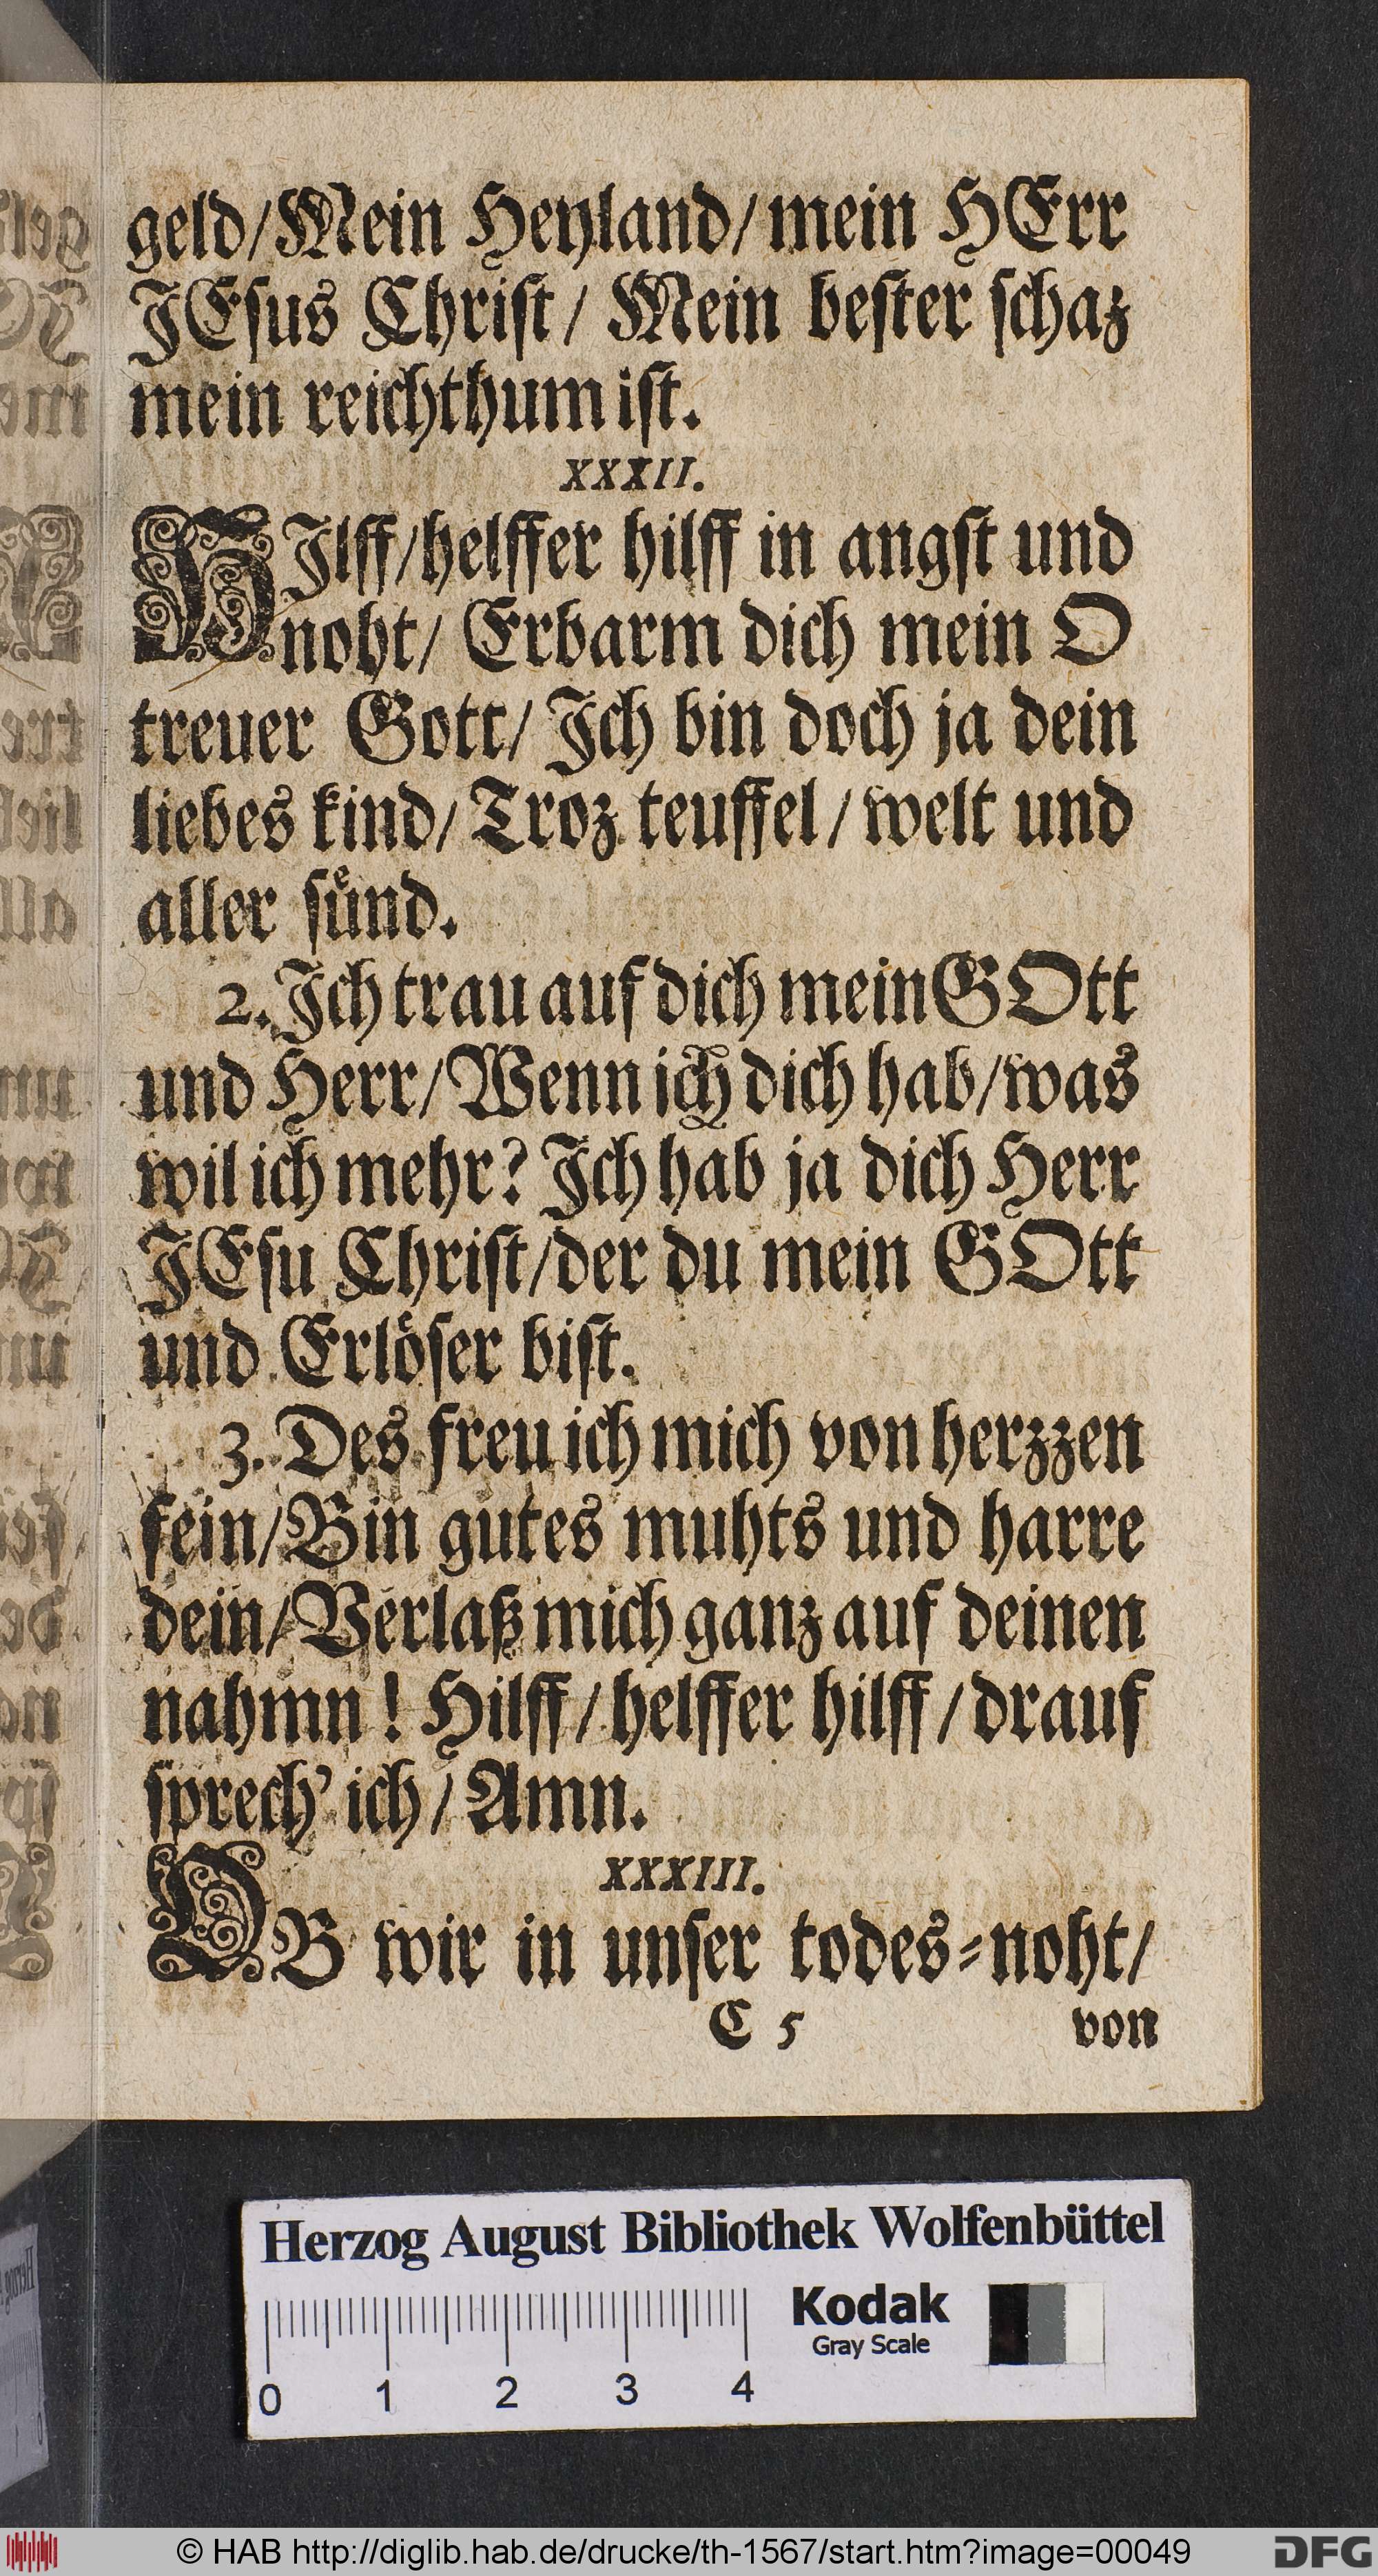 geld/Mein Heyland/mein HErr
JEsus Christ/ Mein bester schaz
mein reichthum ist.
XXXII.
HJlff/helffer hilff in angst und
noht/ Erbarm dich mein O
treuer Gott/ Jch bin doch ja dein
liebes kind/ Troz teuffel/welt und
aller suͤnd.
2. Jch trau auf dich mein GOtt
und Herr/Wenn ich dich hab/was
wil ich mehr? Jch hab ja dich Herr
JEsu Christ/der du mein GOtt
und Erloͤser bist.
3. Des freu ich mich von herzzen
fein/Bin gutes muhts und harre
dein/Verlaß mich ganz auf deinen
nahmn! Hilff/helffer hilff/drauf
sprech' ich/Amn.
XXXIII.
OB wir in unser todes-noht/
C 5 von
Herzog August Bibliothek Wolfenbüttel
Kodak
Gray Scale
0 1 2 3 4
© HAB http://diglib.hab.de/drucke/th-1567/start.htm?image=00049
DFG